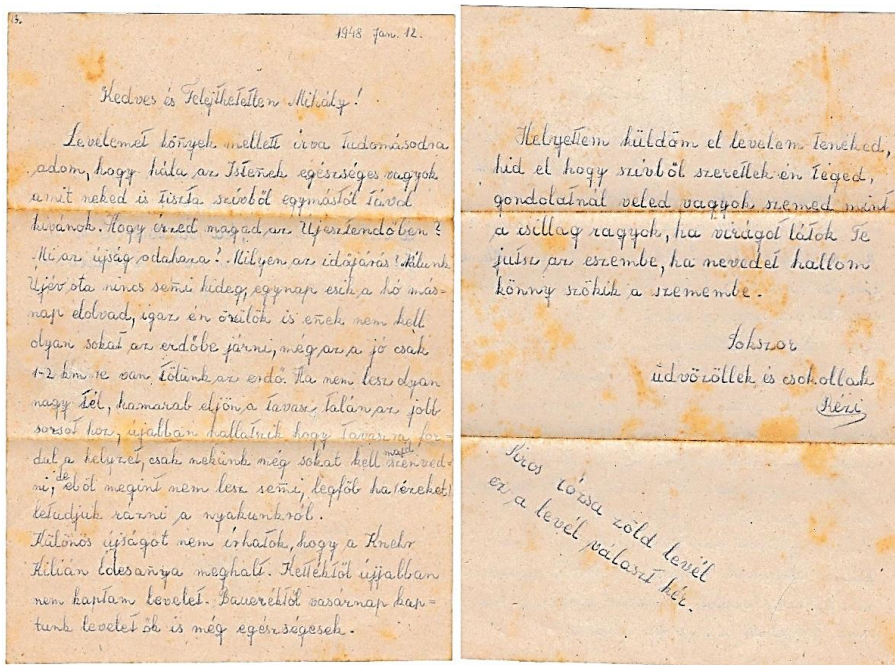 13.
1948 Jan. 12.
Kedves és Felejthetetlen Mihály!
Levelemet könyek mellett irva tudomásodra
adom, hogy hála az Istenek egészséges vagyok
amit neked is tiszta szívből egymástól távol
kivánok. Hogy érzed magad az Ujesztendőben?
Mi az újság odahaza? Milyen az időjárás? Nálunk
Újév óta nincs semi hideg, egynap esik a hó más-
nap elolvad, igaz én örülök is enek nem kell
olyan sokat az erdőbe járni, még az a jó csak
1-2 km re van tőlünk az erdő. Ha nem lesz olyan
nagy tél, hamarab eljön a tavasz, talán az jobb
sorsot hoz, újabban hallatszik hogy tavaszra for-
dul a helyzet, csak nekünk még sokat kell majd szenved-
ni, de eböl megint nem lesz semi, legföb ha (ezeket)
letudjuk rázni a nyakunkról.
Különös újságot nem irhatok, hogy a Knehr
Kilián édesanya meghalt. Kettéktől újjabban
nem kaptam levelet. Baueréktől vasárnap kap=
tunk levelet ők is még egészségesek.
Helyettem küldöm el levelem tenéked,
hid el hogy szívből szeretlek én téged,
gondolatnál veled vagyok szemed mint
a csillag ragyok, ha virágot látok Te
jutsz az eszembe, ha nevedet hallom
könny szökik a szemembe.
Sokszor
üdvözöllek és csokollak
Rézi
Piros rózsa zöld levél
ez a levél választ kér.